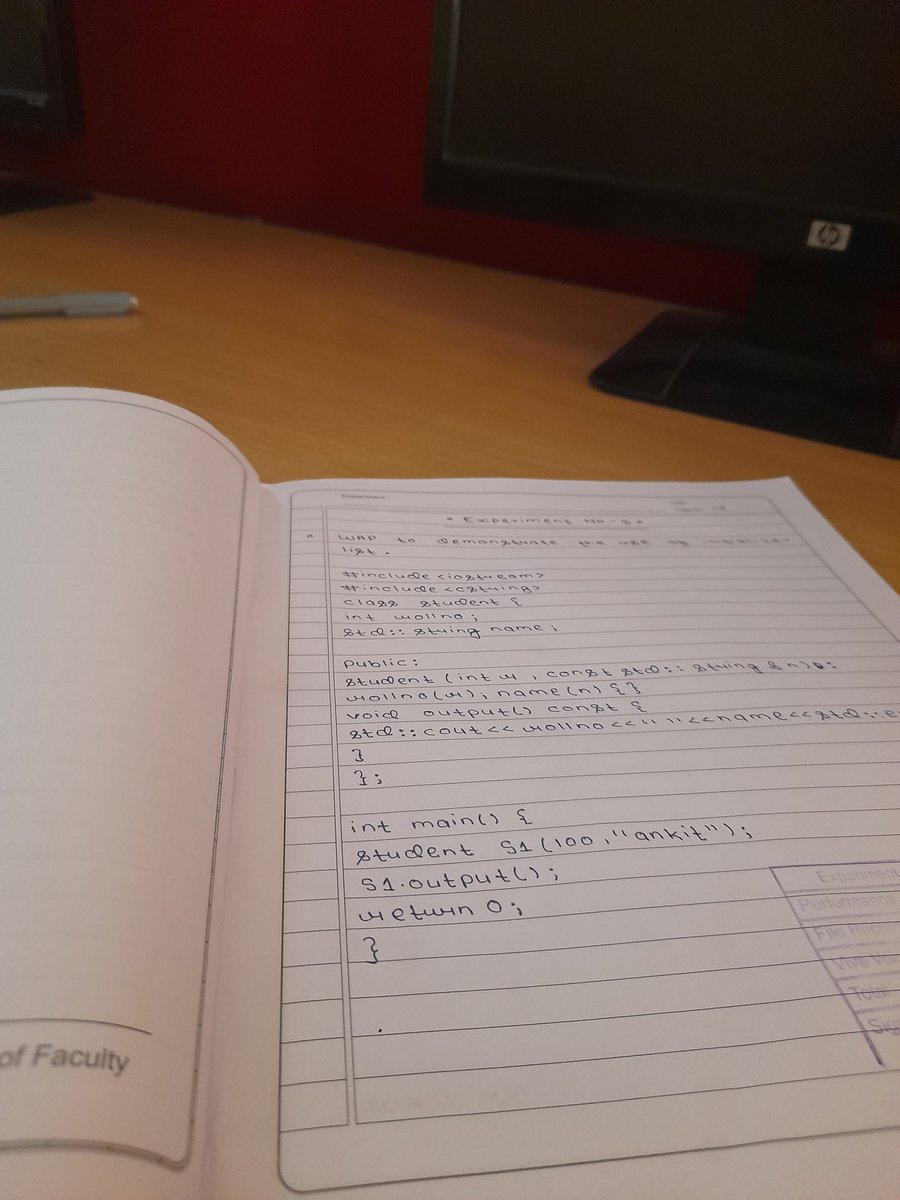 hp
Experiment
• Experiment No-8 •
WAP to demonstrate the use of initializer
list.
#include <iostream>
#include <cstring>
class student {
int rollno;
std::string name;
public:
student (int r, const std::string & n) :
rollno(r), name(n) {}
void output() const {
std::cout<<rollno<<" "<<name<<std::e
}
};
int main() {
student S1(100,"ankit");
S1.output();
return 0;
}
Experiment
Performance
File Recor
Viva Vo
Total
Sig
of Faculty